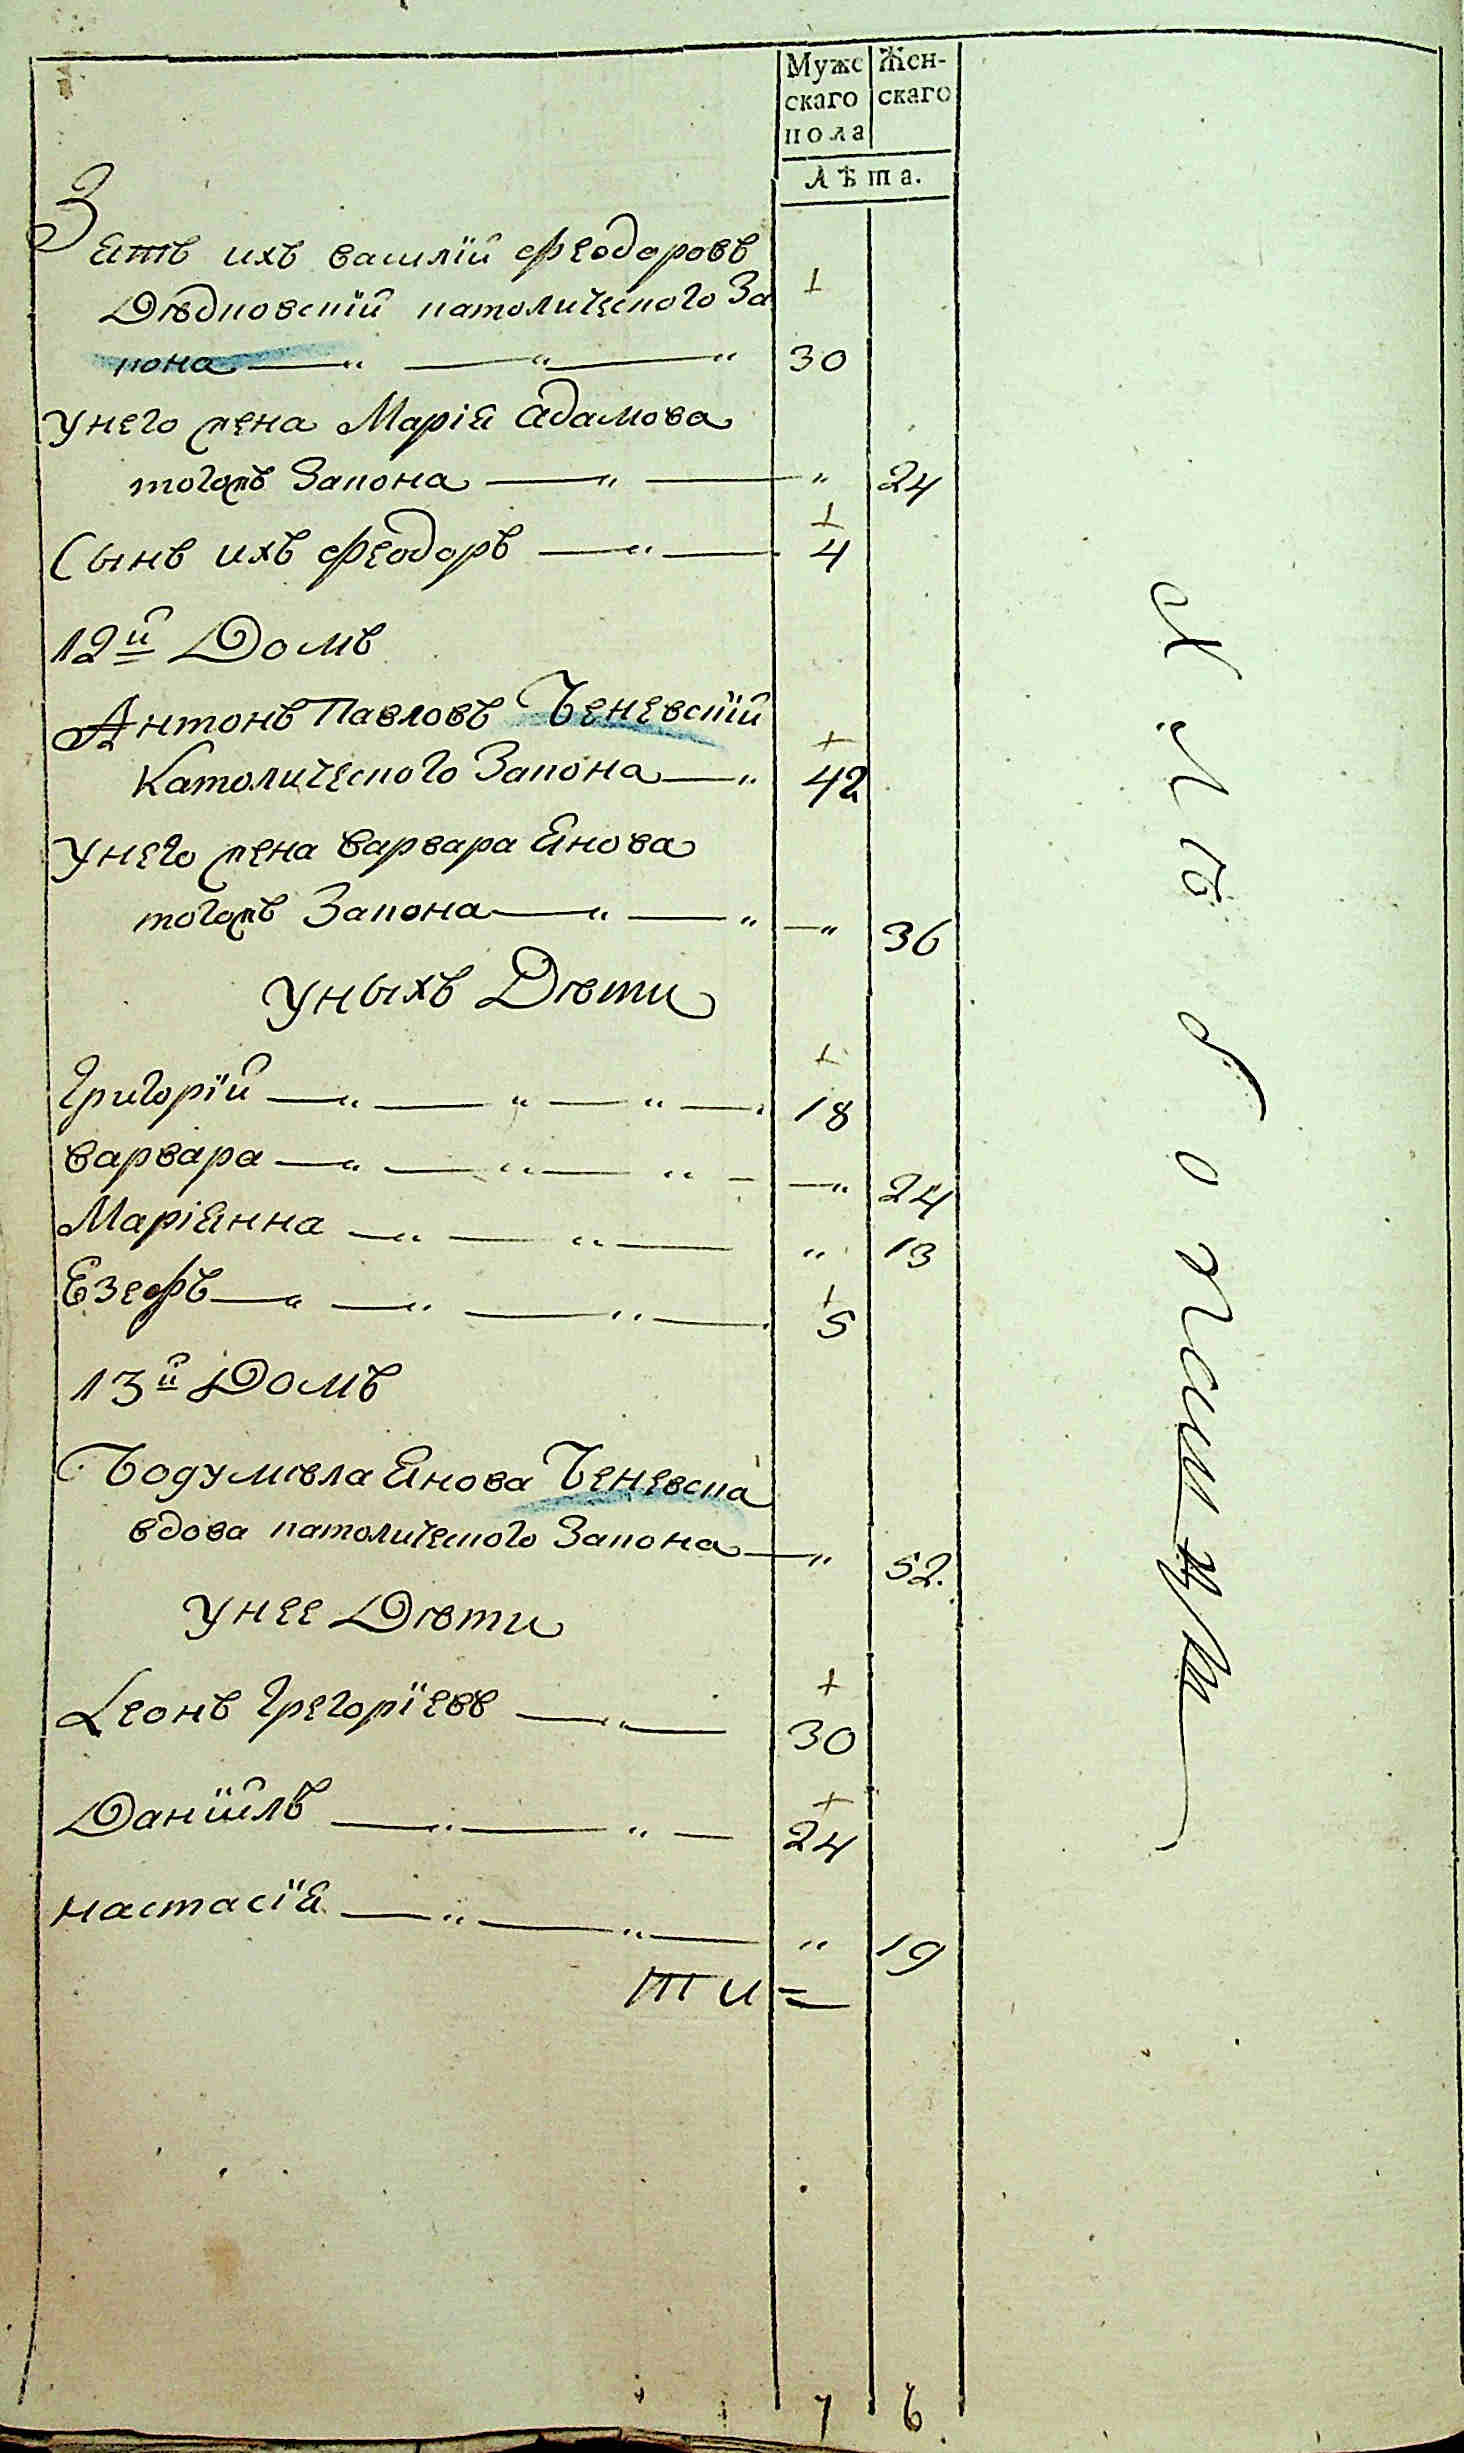 Муже
скаго
пола
Жен-
скаго
Лѣта.
Зять ихъ василій Феодоровъ
Дѣдковскій католического За
кона — „ — „ — „ 30
унего жена Марія адамова
тогожъ Закона — „ — „ 24
Сынъ ихъ Феодоръ — „ — 4
12й Домъ
Антонъ Павловъ Ченевскій
Католического Закона — „ 42
унего жена варвара Янова
тогожъ Закона — „ — „ — „ 36
уныхъ Дѣти
Григорій — „ — „ — „ — 18
варвара — „ — „ — „ — — „ 24
Маріянна — „ — „ — „ 13
Езефъ — „ — „ — „ — 5
13й Домъ
Богумѣла Янова Ченевска
вдова католического Закона — „ 52.
унее Дѣти
Леонъ Грегоріевъ — „ — 30
Даніилъ — „ — „ — 24
настасія — „ — „ — „ 19
ти =
7 6
Хлѣбопашцы